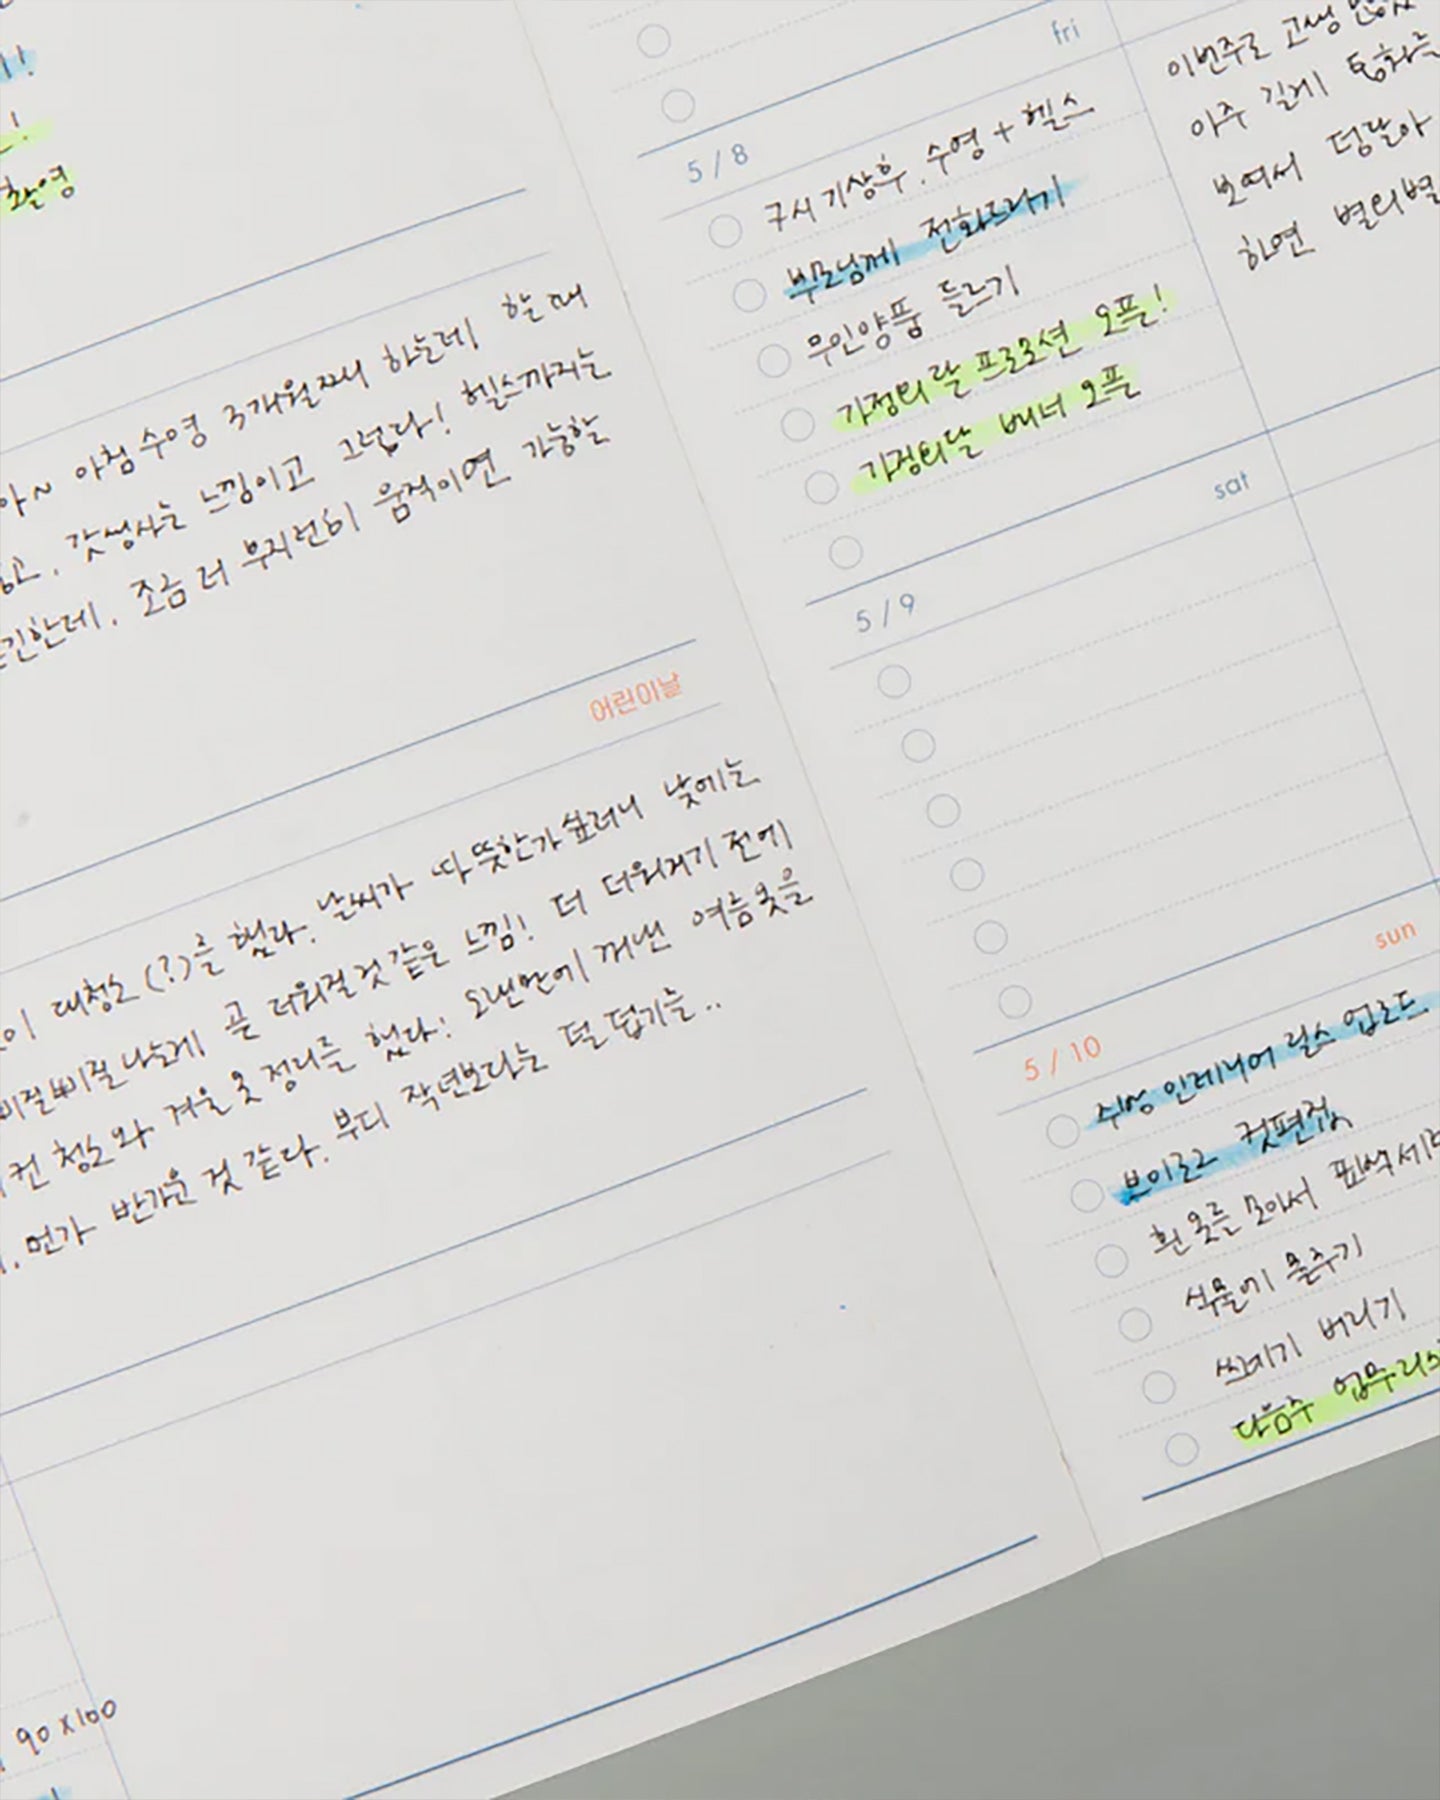 !
!
촬영
아~ 아침 수영 3개월째 하는데 할 때
고, 갓생사는 느낌이고 그렇다! 헬스까지는
긴한데, 조금 더 부지런히 움직이면 가능할
어린이날
대청소(?)를 했다. 날씨가 따뜻한가 싶더니 낮에는
삐질삐질 나는게 곧 더워질 것 같은 느낌! 더 더워지기 전에
청소와 겨울 옷 정리를 했다! 오랜만에 꺼낸 여름옷을
먼가 반가운 것 같다. 부디 작년보다는 덜 덥기를..
90 x 100
fri
5 / 8
9시 기상후, 수영 + 헬스
부모님께 전화드리기
무인양품 들르기
가정의 달 프로모션 오픈!
가정의 달 배너 오픈
이번주도 고생
아주 길게 통화를
보여서 덩달아
하면 별의별
sat
5 / 9
sun
5 / 10
수영 인터뷰어 릴스 업로드
브이로그 컷편집
흰 옷들 모아서
식물에 물주기
쓰레기 버리기
다음주 업무